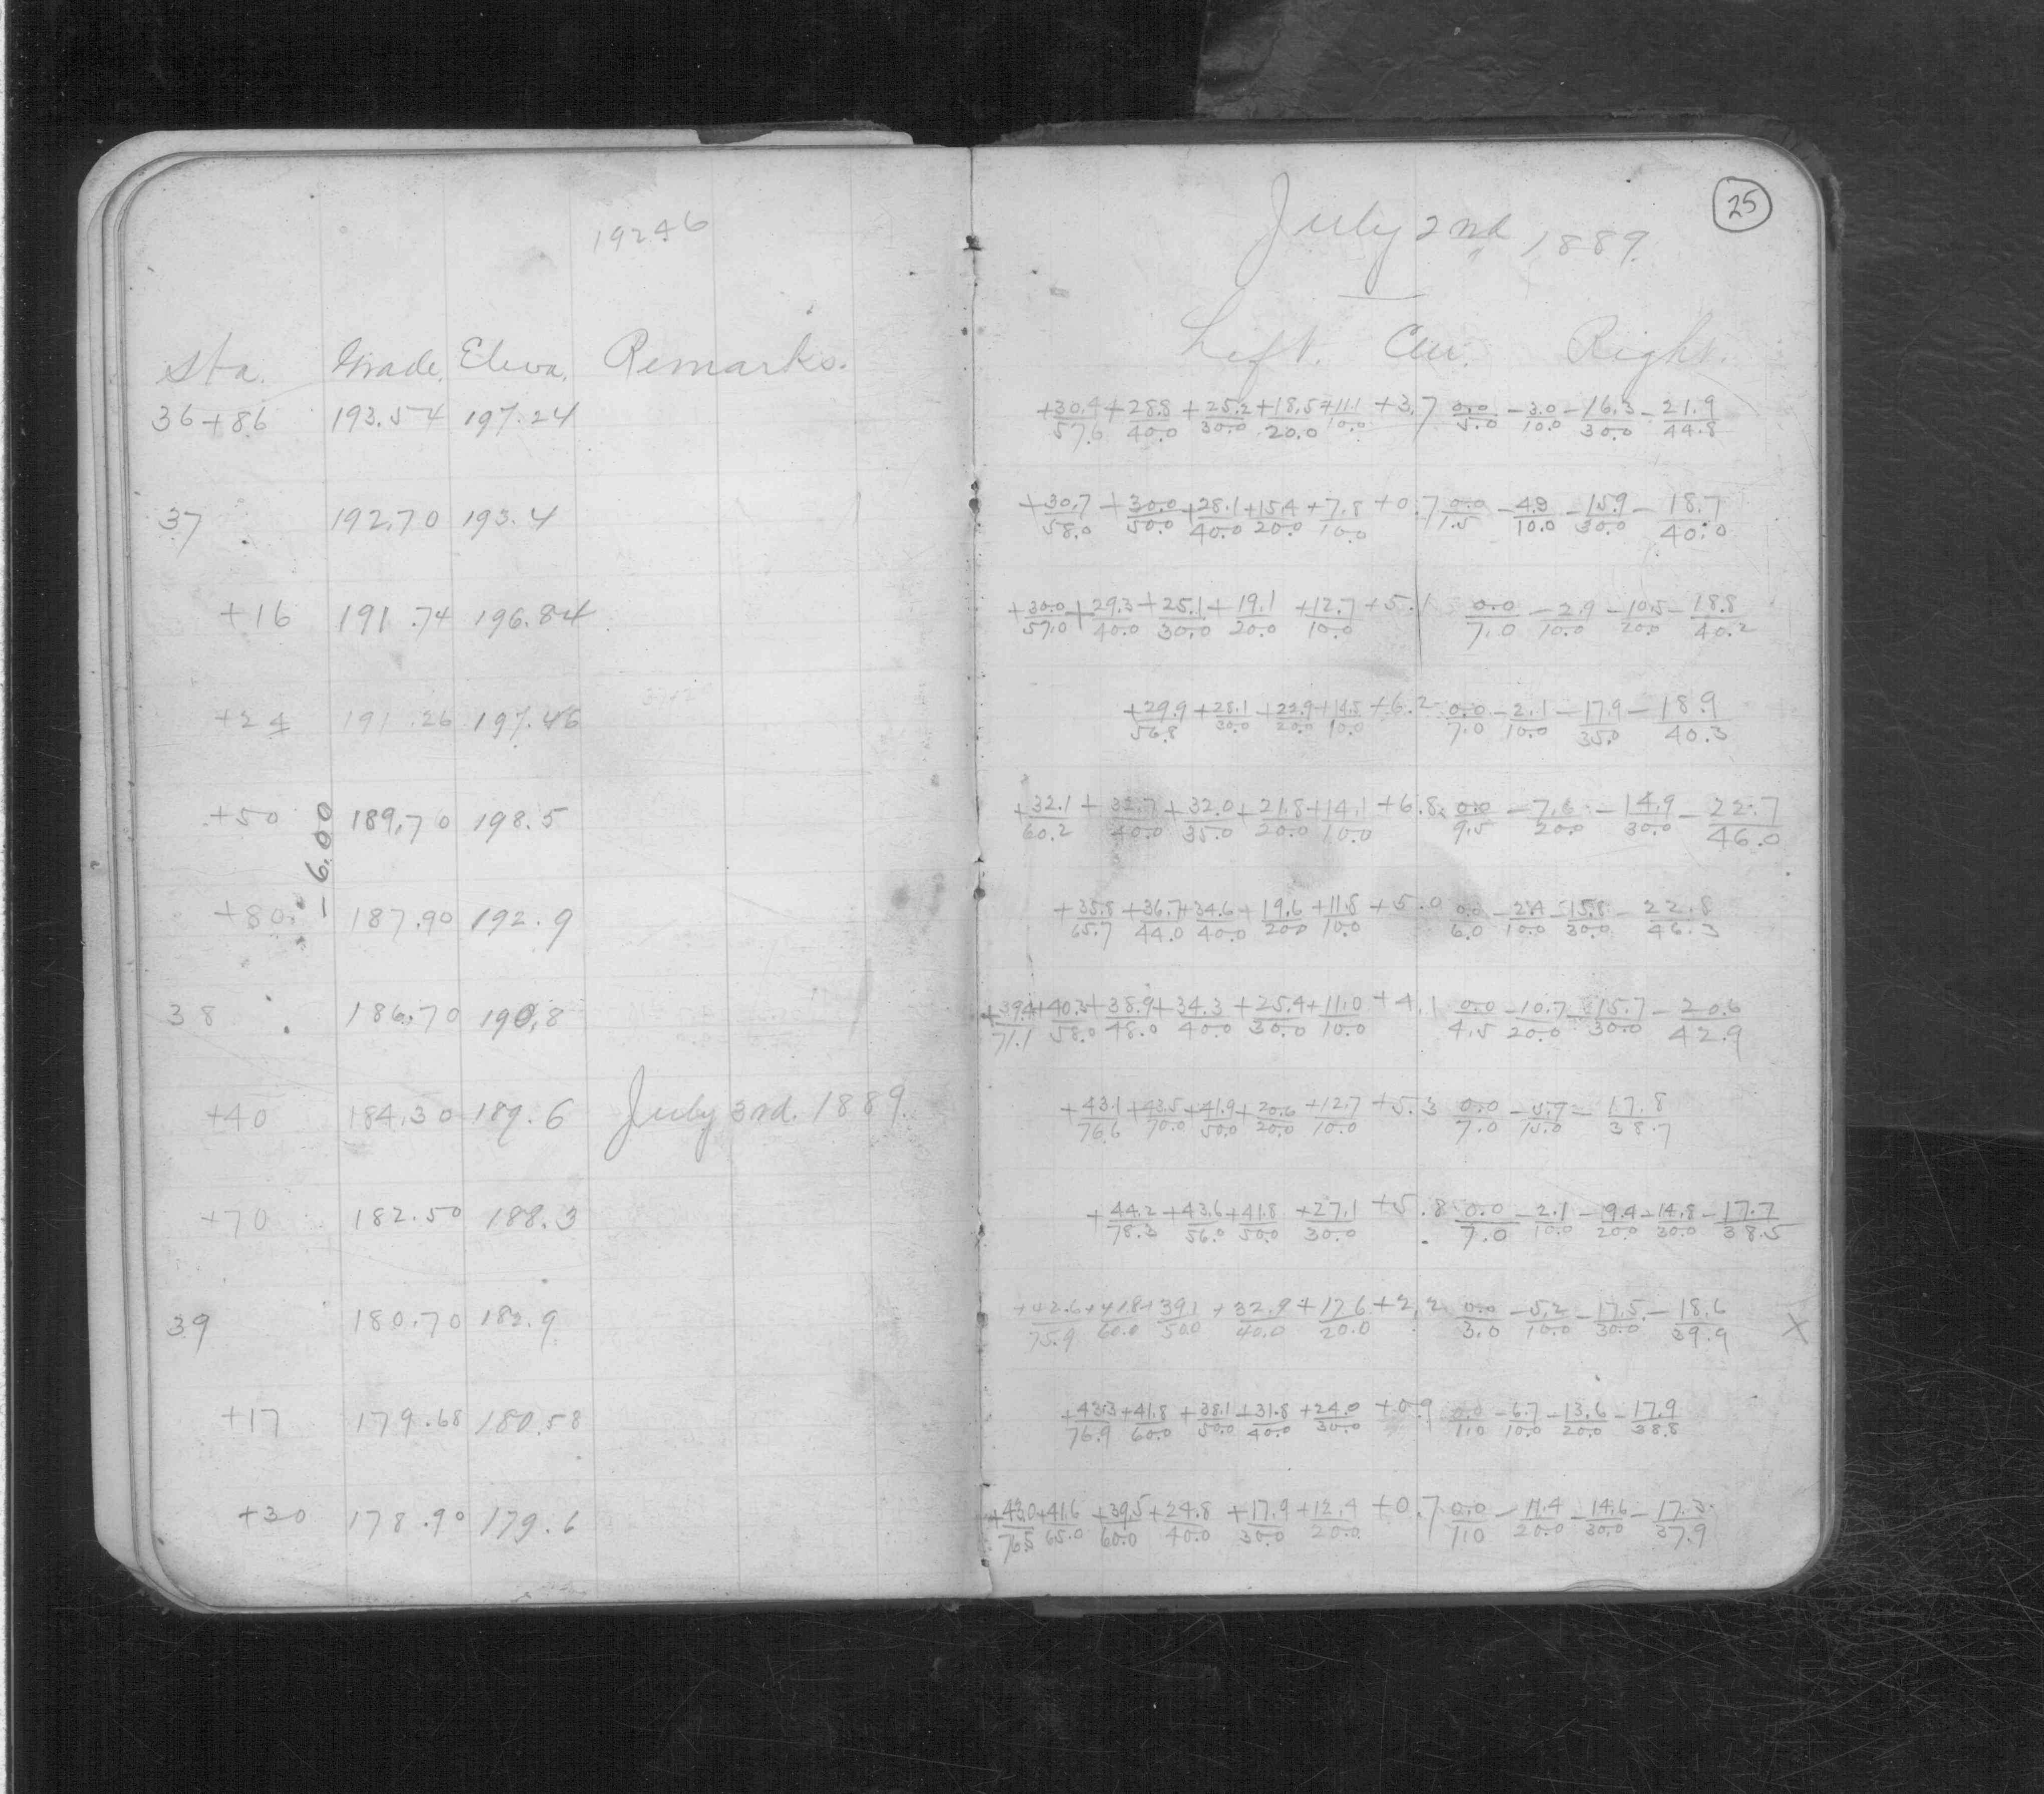 19246
Sta. Grade. Eleva. Remarks.
36+86 193.54 197.24
37 192.70 193.4
+16 191.74 196.84
+24 191.26 197.46
+50 189.70 198.5
-6.00
+80 187.90 192.9
38 186.70 190.8
+40 184.30 189.6 July 3rd. 1889.
+70 182.50 188.3
39 180.70 182.9
+17 179.68 180.58
+30 178.90 179.6
25
July 2nd 1889.
Left. Cen. Right.
+30.4/57.6 +28.8/40.0 +25.2/30.0 +18.5/20.0 +11.1/10.0 +3.7 0.0/5.0 -3.0/10.0 -16.3/30.0 -21.9/44.8
+30.7/58.0 +30.0/50.0 +28.1/40.0 +15.4/20.0 +7.8/10.0 +0.7 0.0/1.5 -4.9/10.0 -15.9/30.0 -18.7/40.0
+30.0/57.0 +29.3/40.0 +25.1/30.0 +19.1/20.0 +12.7/10.0 +5.1 0.0/7.0 -2.9/10.0 -10.5/20.0 -18.8/40.2
+29.9/56.8 +28.1/30.0 +22.9/20.0 +14.5/10.0 +6.2 0.0/7.0 -2.1/10.0 -17.9/35.0 -18.9/40.3
+32.1/60.2 +32.7/40.0 +32.0/35.0 +21.8/20.0 +14.1/10.0 +6.8 0.0/9.5 -7.6/20.0 -14.9/30.0 -22.7/46.0
+35.8/65.7 +36.7/44.0 +34.6/40.0 +19.6/20.0 +11.8/10.0 +5.0 0.0/6.0 -2.4/10.0 -15.8/30.0 -22.8/46.3
+39.4/71.1 +40.3/58.0 +38.9/48.0 +34.3/40.0 +25.4/30.0 +11.0/10.0 +4.1 0.0/4.5 -10.7/20.0 -15.7/30.0 -20.6/42.9
+43.1/76.6 +43.5/70.0 +41.9/50.0 +20.6/20.0 +12.7/10.0 +5.3 0.0/7.0 -5.7/15.0 -17.8/38.7
+44.2/78.3 +43.6/56.0 +41.8/50.0 +27.1/30.0 +5.8 0.0/7.0 -2.1/10.0 -9.4/20.0 -14.8/30.0 -17.7/38.5
+42.6/75.9 +41.8/60.0 +39.1/50.0 +32.9/40.0 +17.6/20.0 +2.2 0.0/3.0 -5.2/10.0 -17.5/30.0 -18.6/39.9 X
+43.3/76.9 +41.8/60.0 +38.1/50.0 +31.8/40.0 +24.0/30.0 +0.9 0.0/1.0 -6.7/10.0 -13.6/20.0 -17.9/38.8
+43.0/76.5 +41.6/65.0 +39.5/60.0 +24.8/40.0 +17.9/30.0 +12.4/20.0 +0.7 0.0/1.0 -11.4/20.0 -14.6/30.0 -17.3/37.9